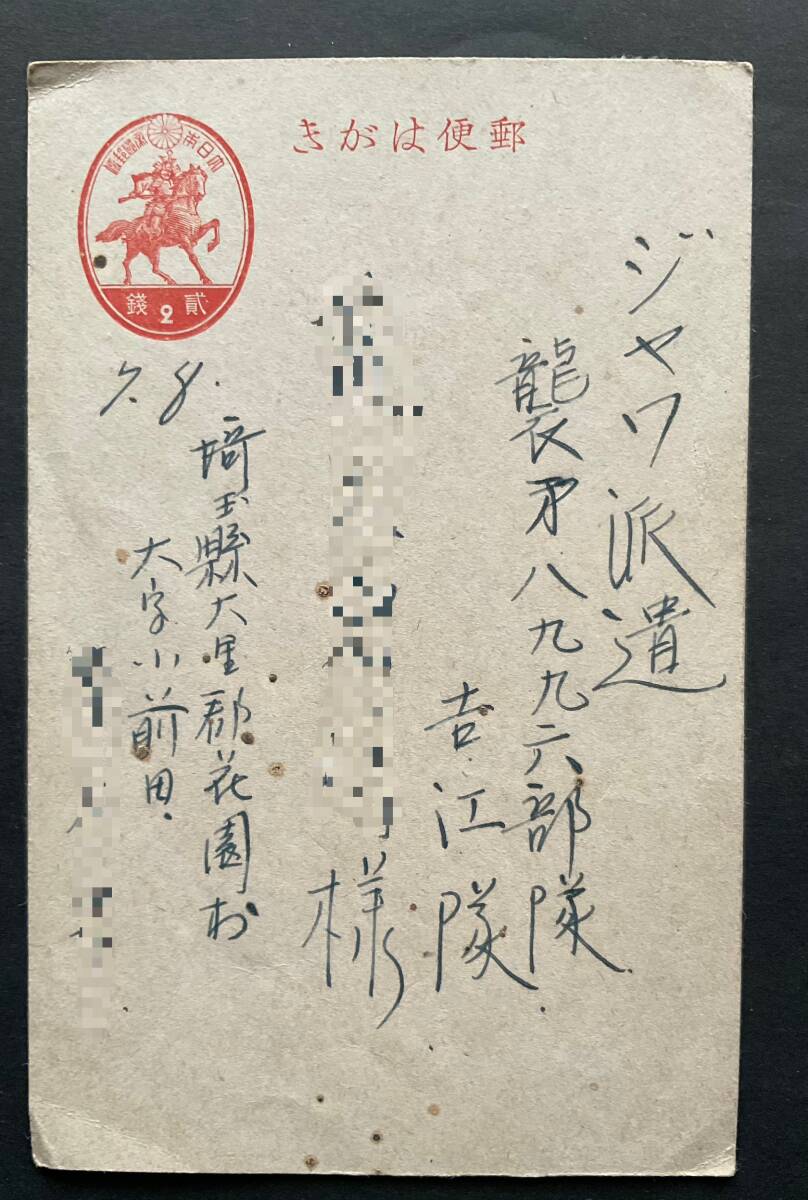 郵便はがき
大日本帝國郵便
貳2錢
ジャワ派遣
襲第八九九六部隊
吉江隊
様
7.8.
埼玉縣大里郡花園村
大字小前田.